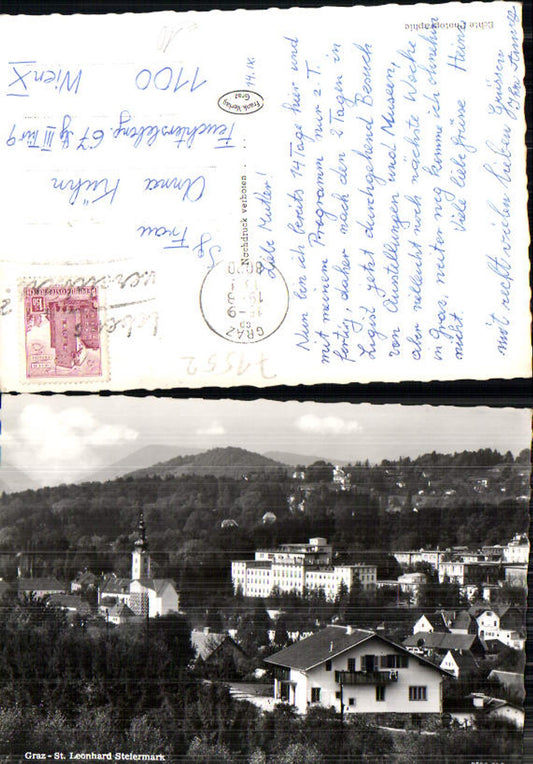 Echte Photographie
14.IX.
Liebe Mutter!
Nun bin ich bereits 14 Tage hier und
mit meinem Programm nur z. T.
fertig, daher nach den 2 Tagen in
jetzt durchgehend Besuch
von Ausstellungen und Museen,
aber vielleicht noch nächste Woche
in Graz, weiter weg komme ich ohnehin
nicht. Viele liebe Grüsse Heinz
mit recht vielen lieben Grüssen
Frank Verlag
Graz
Nachdruck verboten
GRAZ
8010
Frau
Anna Kühn
67 III
1100 Wien X
71552
Graz - St. Leonhard Steiermark